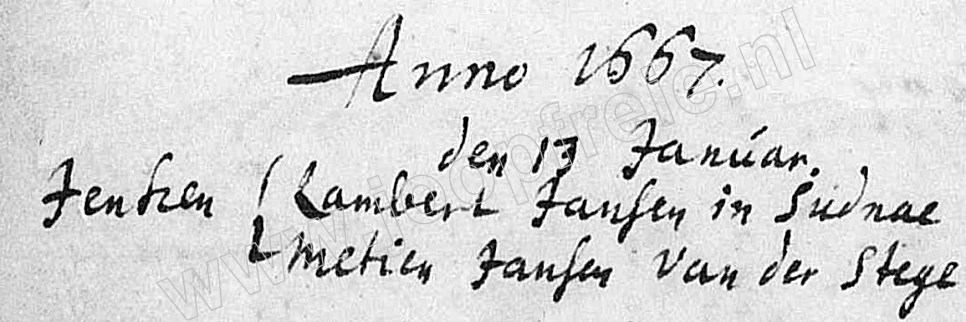 Anno 1667.
den 13 Januar.
Jentien { Lambert Jansen in Sudnae
Metien Jansen Van der Stege
www.joopfreic.nl